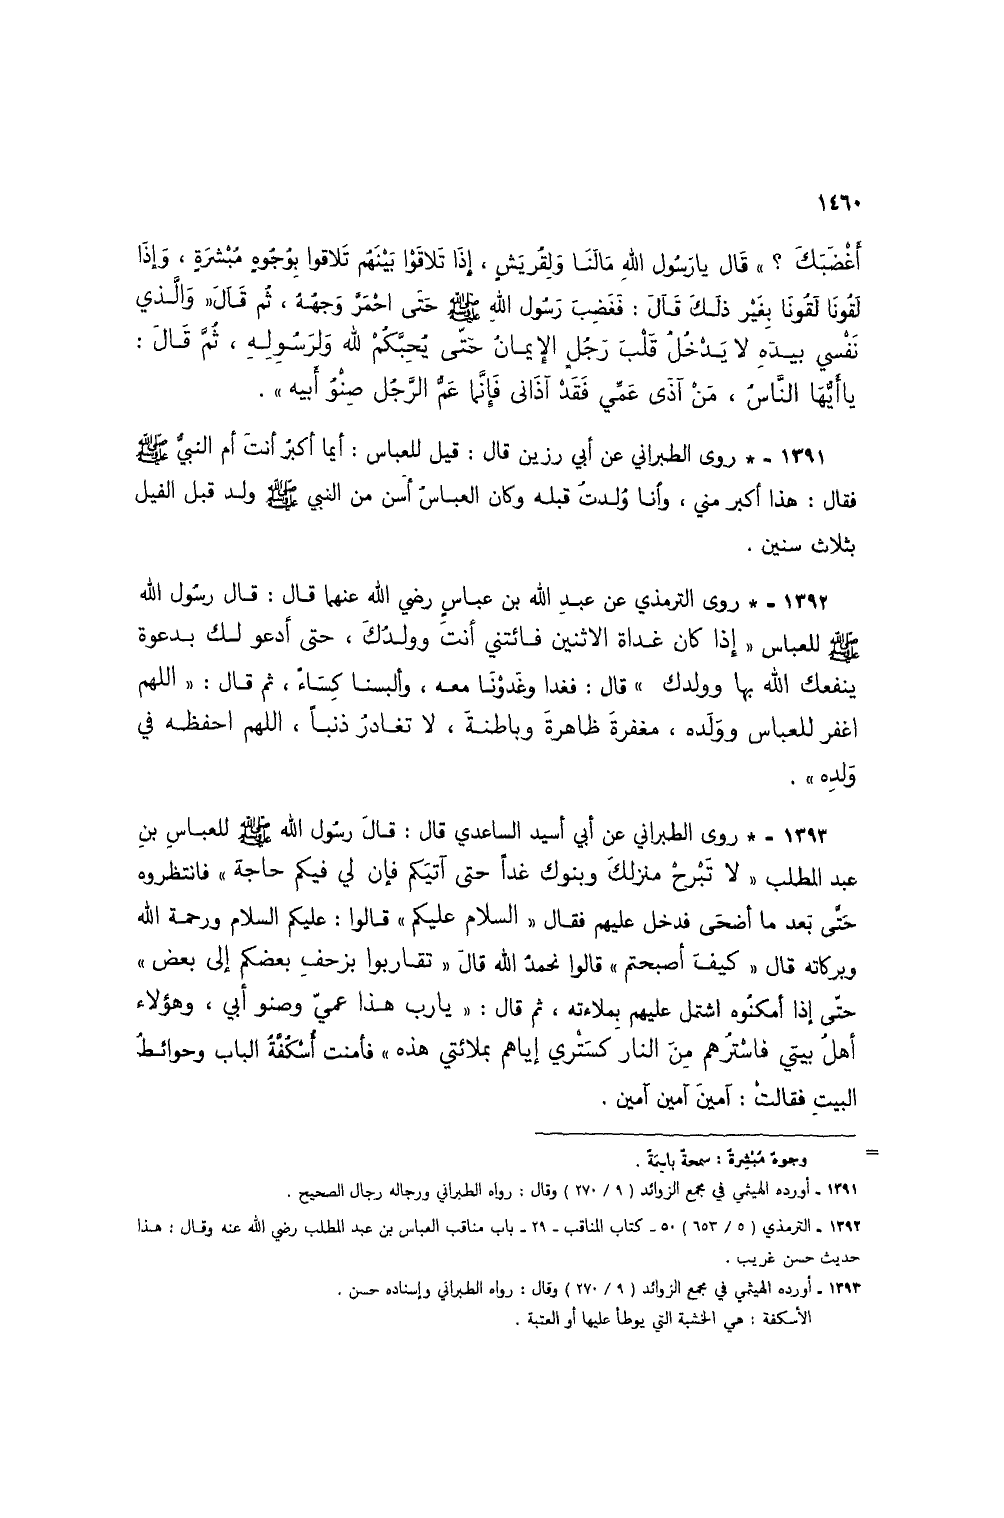 ١٤٦٠
أَغْضَبَكَ ؟ » قَال يارَسُول اللهِ مَالَنَا وَلِقُرَيَشٍ ، إِذَا تَلاقَوْا بَيْنَهُم تَلاقوا بِوُجُوهٍ مُبْشَرَةٍ ، وَإِذَا
لَقُونَا لَقُونَا بِغَيْر ذلَـكَ قَـالَ : فَغَضِبَ رَسُول اللهِ ﷺ حَتَى احْمَرَّ وَجهُهُ ، ثُم قَـالَ « وَالَّـذي
نَفْسي بيـدَهِ لا يَـدْخُلُ قَلْبَ رَجُلٍ الإِيمـانُ حَتّى يُحِبَّكُمْ لله وَلرَسُولِـهِ ، ثُمَّ قَـالَ :
ياأَيُّهَا النَّاسُ ، مَنْ آذَى عَمِّي فَقَدْ آذَانى فَإِنَّمَا عَمُّ الرَّجُل صِنْوُ أَبيه » .
١٣٩١ - * روى الطبراني عن أبي رزين قال : قيل للعباس : أيما أكبرُ أنتَ أم النبيُّ ﷺ
فقال : هذا أكبر مني ، وأنـا وُلـدتُ قبلـه وكان العبـاسُ أسن من النبي ﷺ ولـد قبل الفيل
بثلاث سنين .
١٣٩٢ - * روى الترمذي عن عبـدِ الله بن عبـاسٍ رضي الله عنهما قـال : قـال رسُول الله
ﷺ للعباس « إذا كان غـداة الاثنين فـائتني أنتَ وولـدُكَ ، حتى أدعو لـك بـدعوة
ينفعك الله بها وولدك » قال : فغدا وغَدوْنَا معـه ، وألبسنـا كِسَاءً ، ثم قـال : « اللهم
اغفر للعباس وولَده ، مغفرةَ ظاهرةَ وباطنـةَ ، لا تغـادرُ ذنبـاً ، اللهم احفظـه في
وَلدِه » .
١٣٩٣ - * روى الطبراني عن أبي أسيد الساعدي قال : قـالَ رسُول الله ﷺ للعبـاسِ بن
عبد المطلب « لا تَبْرحْ منزلكَ وبنوك غداً حتى آتيَكم فإن لي فيكم حاجة » فانتظروه
حَتَّى بَعد ما أضحَى فدخل عليهم فقـال « السلام عليكم » قـالوا : عليكم السلام ورحمـة الله
وبركاته قال « كيفَ أصبحتم » قالوا نحمدُ الله قالَ « تقـاربوا بزحفِ بعضكم إلى بعض »
حتّى إذا أمكنُوه اشتمل عليهم بِملاءته ، ثم قال : « يارب هـذا عميّ وصنو أبي ، وهؤلاء
أهلُ بيتي فاسْترُهم مِنَ النار كسَتْري إياهم بملائتي هذه » فأمنت أُسْكُفَّةُ البـاب وحوائـطُ
البيتِ فقالتْ : آمينَ آمين آمين .
= وجوهٌ مُبْشِرةٌ : سمحةٌ باينةٌ .
١٣٩١ - أورده الهيثمي في مجمع الزوائد ( ٩ / ٢٧٠ ) وقال : رواه الطبراني ورجاله رجال الصحيح .
١٣٩٢ - الترمذي ( ٥ / ٦٥٣ ) ٥٠ - كتاب المناقب - ٢٩ - باب مناقب العباس بن عبد المطلب رضي الله عنه وقـال : هـذا
حديث حسن غريب .
١٣٩٣ - أورده الهيثمي في مجمع الزوائد ( ٩ / ٢٧٠ ) وقال : رواه الطبراني وإسناده حسن .
الأسكفة : هي الخشبة التي يوطأ عليها أو العتبة .